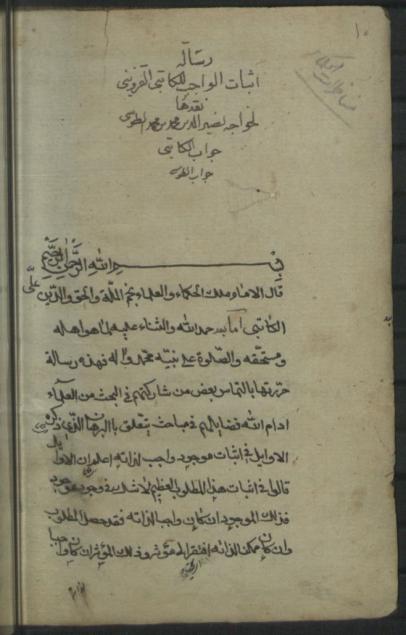 رسالة
اثبات الواجب للكاتبي القزويني
نقدها
لخواجه نصير الدين محمد بن محمد الطوسي
جواب الكاتبي
جواب الطوسي
بسم الله الرحمن الرحيم
قال الامام ملك الحكماء والعلماء نجم الملة والحق والدين علي
الكاتبي اما بعد حمد الله والثناء عليه بما هو اهله
ومستحقه والصلوة على نبيه محمد وآله فهذه رسالة
حررتها بالتماس بعض من شاركتهم في البحث من العلماء
ادام الله فضايلهم في مباحث يتعلق بالبرهان الذي ذكره
الاوايل في اثبات موجود واجب لذاته اعلم ان الاوايل
قالوا في اثبات هذا المطلوب العظيم لا شك في وجود موجود
فذلك الموجود ان كان واجبا لذاته فقد حصل المطلوب
وان كان ممكن لذاته افتقر الى مؤثر وذلك المؤثر ان كان واجبا